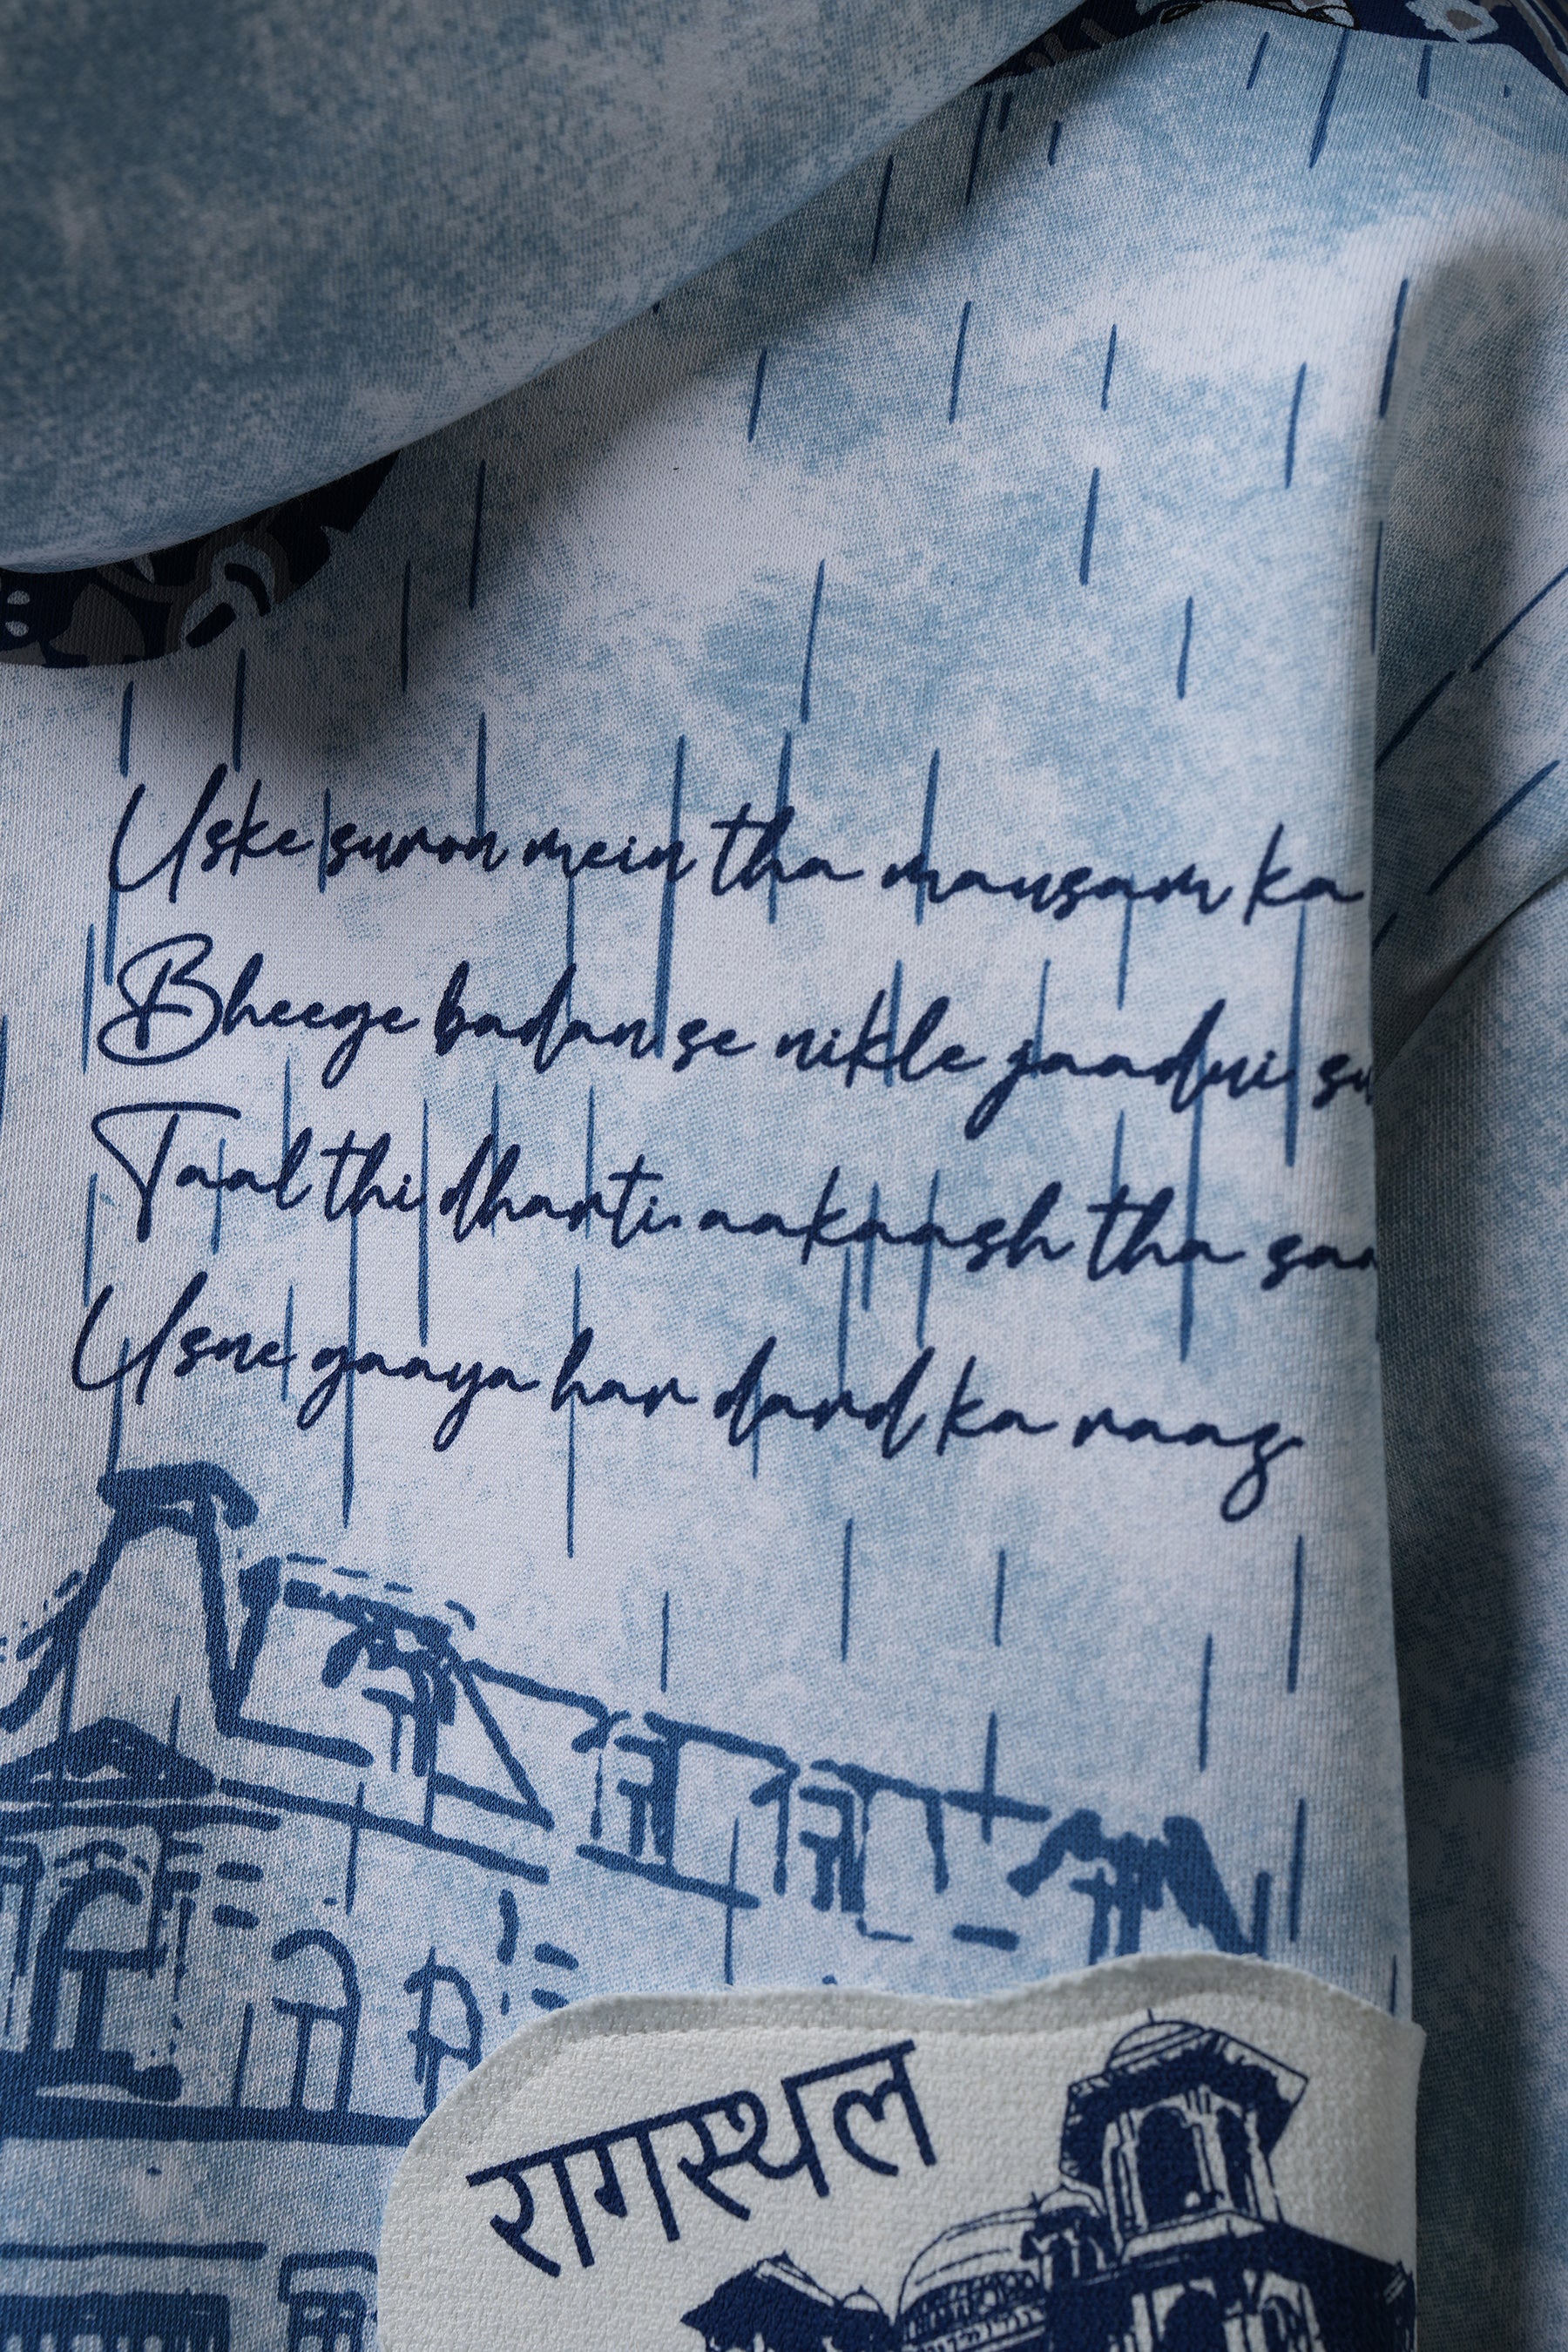 Uske suron mein tha mausam ka
Bheege badan se nikle jaadui
Taal thi dharti, aakaash tha
Usne gaaya har dard ka raaz
रागस्थल